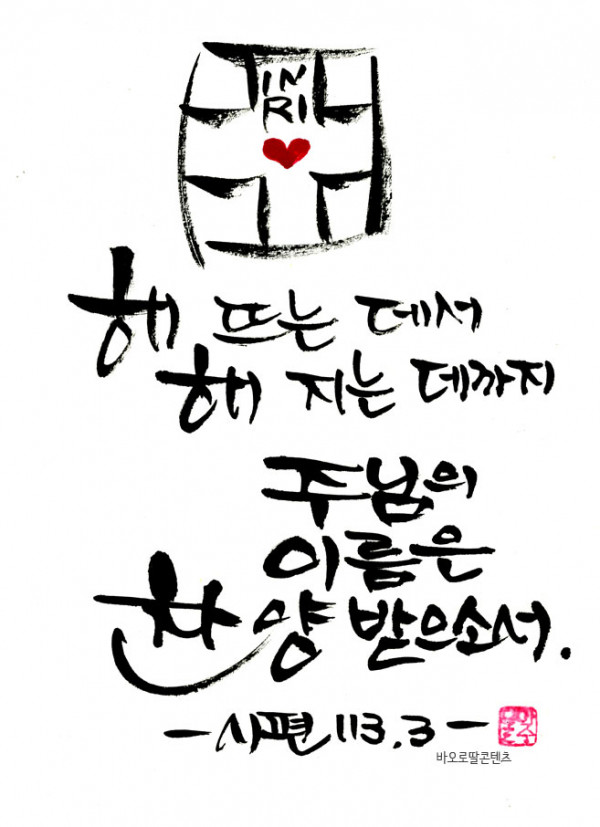 IN
RI
해 뜨는 데서
해 지는 데까지
주님의
이름은
찬양 받으소서.
- 시편 113.3 -
바오로딸콘텐츠